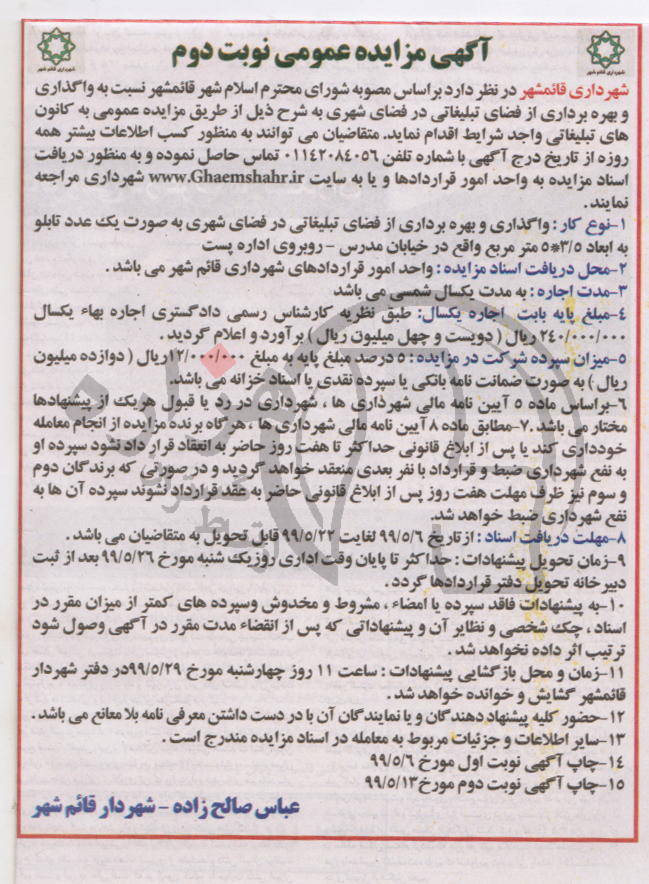 آگهی مزایده عمومی نوبت دوم
شهرداری قائم شهر
شهرداری قائم شهر
شهرداری قائمشهر در نظر دارد براساس مصوبه شورای محترم اسلام شهر قائمشهر نسبت به واگذاری
و بهره برداری از فضای تبلیغاتی در فضای شهری به شرح ذیل از طریق مزایده عمومی به کانون
های تبلیغاتی واجد شرایط اقدام نماید. متقاضیان می توانند به منظور کسب اطلاعات بیشتر همه
روزه از تاریخ درج آگهی با شماره تلفن ۰۱۱۴۲۰۸۴۰۵۶ تماس حاصل نموده و به منظور دریافت
اسناد مزایده به واحد امور قراردادها و یا به سایت www.Ghaemshahr.ir شهرداری مراجعه
نمایند.
۱-نوع کار : واگذاری و بهره برداری از فضای تبلیغاتی در فضای شهری به صورت یک عدد تابلو
به ابعاد ۳/۵*۵ متر مربع واقع در خیابان مدرس - روبروی اداره پست
۲-محل دریافت اسناد مزایده : واحد امور قراردادهای شهرداری قائم شهر می باشد .
۳-مدت اجاره : به مدت یکسال شمسی می باشد
۴-مبلغ پایه بابت اجاره یکسال: طبق نظریه کارشناس رسمی دادگستری اجاره بهاء یکسال
۲۴۰/۰۰۰/۰۰۰ ریال ( دویست و چهل میلیون ریال ) برآورد و اعلام گردید .
۵-میزان سپرده شرکت در مزایده : ۵ درصد مبلغ پایه به مبلغ ۱۲/۰۰۰/۰۰۰ریال ( دوازده میلیون
ریال ) به صورت ضمانت نامه بانکی یا سپرده نقدی یا اسناد خزانه می باشد.
۶-براساس ماده ۵ آیین نامه مالی شهرداری ها ، شهرداری در رد یا قبول هریک از پیشنهادها
مختار می باشد .۷-مطابق ماده ۸ آیین نامه مالی شهرداری ها ، هرگاه برنده مزایده از انجام معامله
خودداری کند یا پس از ابلاغ قانونی حداکثر تا هفت روز حاضر به انعقاد قرار داد نشود سپرده او
به نفع شهرداری ضبط و قرارداد با نفر بعدی منعقد خواهد گردید و در صورتی که برندگان دوم
و سوم نیز ظرف مهلت هفت روز پس از ابلاغ قانونی حاضر به عقد قرارداد نشوند سپرده آن ها به
نفع شهرداری ضبط خواهد شد.
۸-مهلت دریافت اسناد : از تاریخ ۹۹/۵/۶ لغایت ۹۹/۵/۲۲ قابل تحویل به متقاضیان می باشد .
۹-زمان تحویل پیشنهادات : حداکثر تا پایان وقت اداری روزیک شنبه مورخ ۹۹/۵/۲۶ بعد از ثبت
دبیر خانه تحویل دفتر قراردادها گردد .
۱۰-به پیشنهادات فاقد سپرده یا امضاء ، مشروط و مخدوش وسپرده های کمتر از میزان مقرر در
اسناد ، چک شخصی و نظایر آن و پیشنهاداتی که پس از انقضاء مدت مقرر در آگهی وصول شود
ترتیب اثر داده نخواهد شد .
۱۱-زمان و محل بازگشایی پیشنهادات : ساعت ۱۱ روز چهارشنبه مورخ ۹۹/۵/۲۹در دفتر شهردار
قائمشهر گشایش و خوانده خواهد شد .
۱۲-حضور کلیه پیشنهاد دهندگان و یا نمایندگان آن با در دست داشتن معرفی نامه بلا معانع می باشد .
۱۳-سایر اطلاعات و جزئیات مربوط به معامله در اسناد مزایده مندرج است .
۱۴-چاپ آگهی نوبت اول مورخ ۹۹/۵/۶
۱۵-چاپ آگهی نوبت دوم مورخ۹۹/۵/۱۳
عباس صالح زاده - شهردار قائم شهر